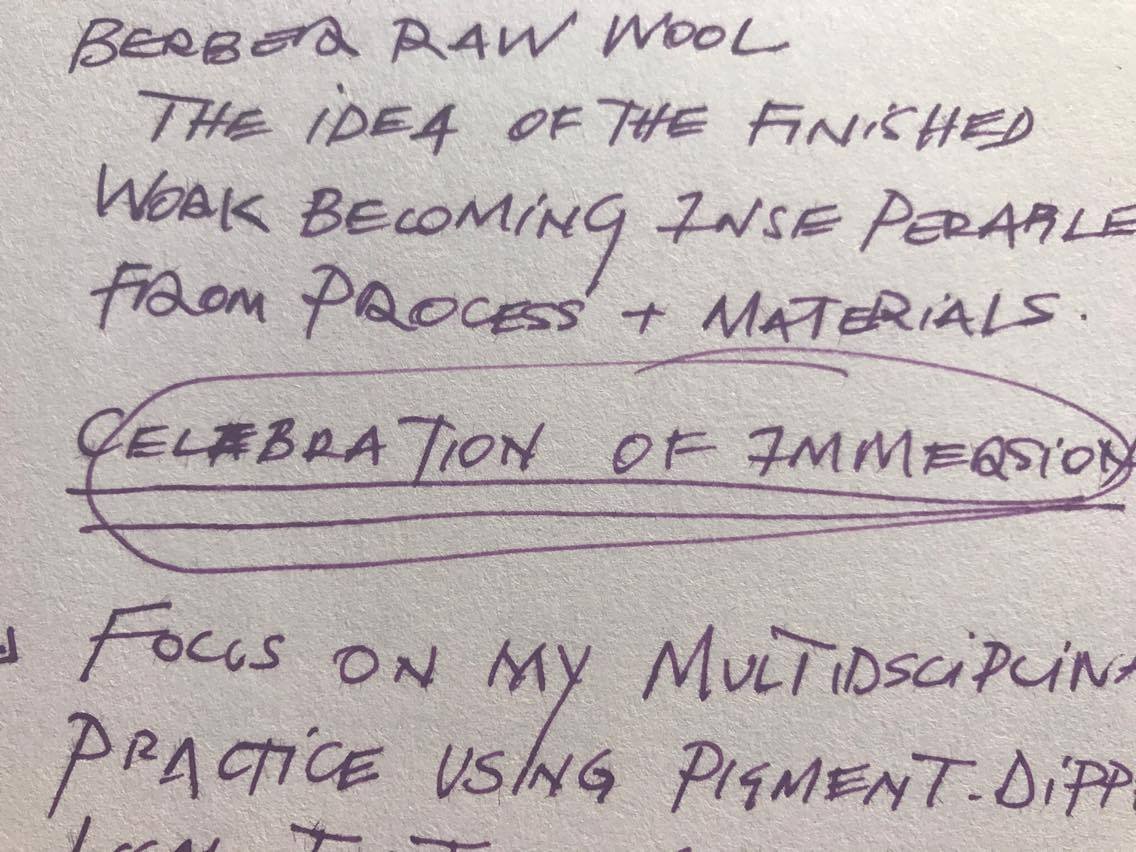 BERBER RAW WOOL
THE IDEA OF THE FINISHED
WORK BECOMING INSEPERABLE
FROM PROCESS + MATERIALS.
CELEBRATION OF IMMERSION
FOCUS ON MY MULTIDSCIPLINA
PRACTICE USING PIGMENT-DIPP